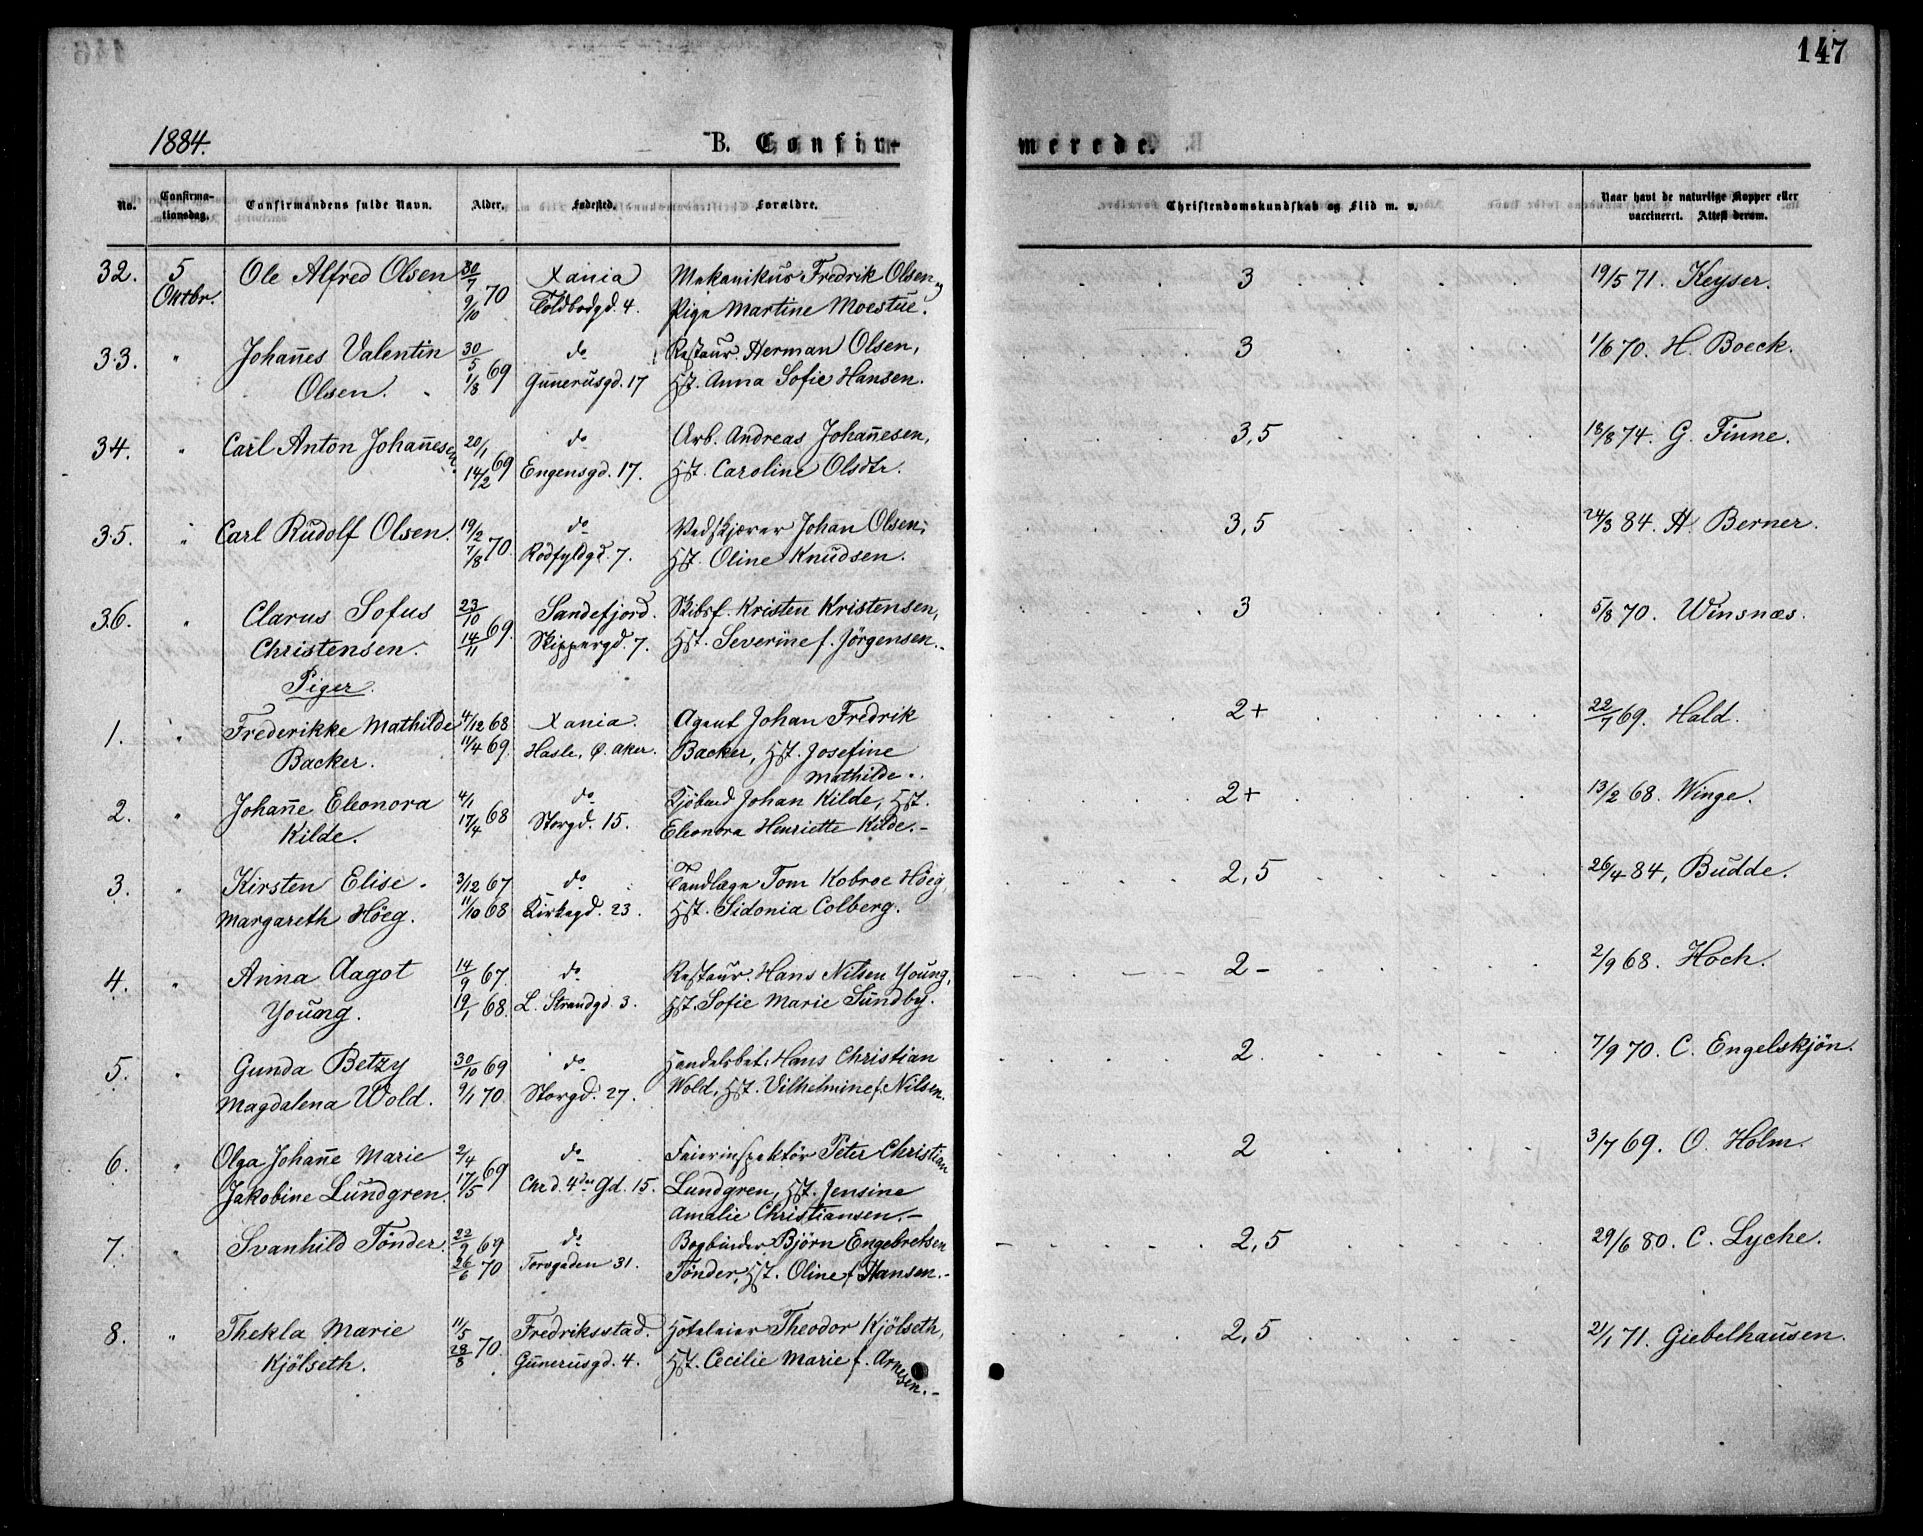 147
1884.
B. Confir-
merede.
No.
Confirma-
tionsdag.
Confirmandens fulde Navn.
Alder.
Fødested.
Forældre.
Christendomskundskab og Flid m. v.
Naar havt de naturlige Kopper eller
vaccineret. Attest derom.
32. 5 Ole Alfred Olsen 30/7 Xania Mekanikus Fredrik Olsen, 3 19/5 71. Keyser.
Oktbr. 9/10 70 Toldbodgd. 4. Pige Martine Moestue.
33. " Johan̄es Valentin 30/5 do Restaur. Herman Olsen, 3 1/6 70. H. Boeck.
Olsen. 1/8 69 Gunerusgd. 17 Hst. Anna Sofie Hansen.
34. " Carl Anton Johan̄esen. 20/1 do Arb. Andreas Johan̄esen, 3,5 18/8 74. G. Finne.
14/2 69 Engensgd. 17. Hst. Caroline Olsdtr.
35. " Carl Rudolf Olsen. 19/2 do Vedskjærer Johan Olsen, 3,5 24/3 84. H. Berner.
7/8 70. Rödfyldgd. 7. Hst. Oline Knudsen.
36. " Clarus Sofus 23/10 Sandefjord. Skibsf. Kristen Kristensen, 3 5/8 70. Winsnæs.
Christensen. 14/11 69. Skippergd. 7. Hst. Severine f. Jörgensen.
Piger.
1. " Frederikke Mathilde 4/12 68 Xania. Agent Johan Fredrik 2+ 22/7 69. Hald.
Backer. 11/4 69. Hasle, Ø. Aker. Backer, Hst. Josefine
Mathilde.
2. " Johan̄e Eleonora 4/1 do Kjöbmd Johan Kilde, Hst. 2+ 13/2 68. Winge.
Kilde. 17/4 68 Storgd. 15. Eleonora Henriette Kilde.-
3. " Kirsten Elise 3/12 67 do Tandlæge Tom Kobroe Höeg, 2,5 26/4 84, Budde.
Margareth Höeg. 11/10 68 Kirkegd. 23. Hst. Sidonia Colberg.
4. " Anna Aagot 14/9 67. do Restaur. Hans Nilsen Young, 2- 2/9 68. Hoch.
Young. 19/1 68. L. Strandgd. 3. Hst. Sofie Marie Sundby.
5. " Gunda Betzy 30/10 69 do Handelsbet. Hans Christian 2. 7/9 70. C. Engelskjön.
Magdalena Wold. 9/1 70. Storgd. 27. Wold, Hst. Vilhelmine f. Nilsen.
6. " Olga Johan̄e Marie 2/4 do Feierinspektör Peter Christian 2 3/7 69. O. Holm.
Jakobine Lundgren. 17/5 69 Chr d. 4des Gd. 15. Lundgren, Hst. Jensine
Amalie Christiansen.-
7. " Svanhild Tönder. 22/9 69 do Bogbinder Björn Engebretsen 2,5 29/6 80. C. Lyche.
26/6 70 Torvgaden 31. Tönder, Hst. Oline f. Hansen.-
8. " Thekla Marie 11/5 Fredriksstad. Hoteleier Theodor Kjölseth, 2,5 21/1 71. Giebelhausen.
Kjölseth. 28/8 70. Gunerusgd. 4. Hst. Cecilie Marie f. Arnesen.-